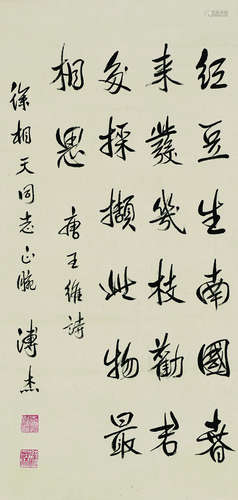 红豆生南國春
来發幾枝勸君
多採擷此物最
相思
唐王維詩
徐相天同志正腕
溥杰